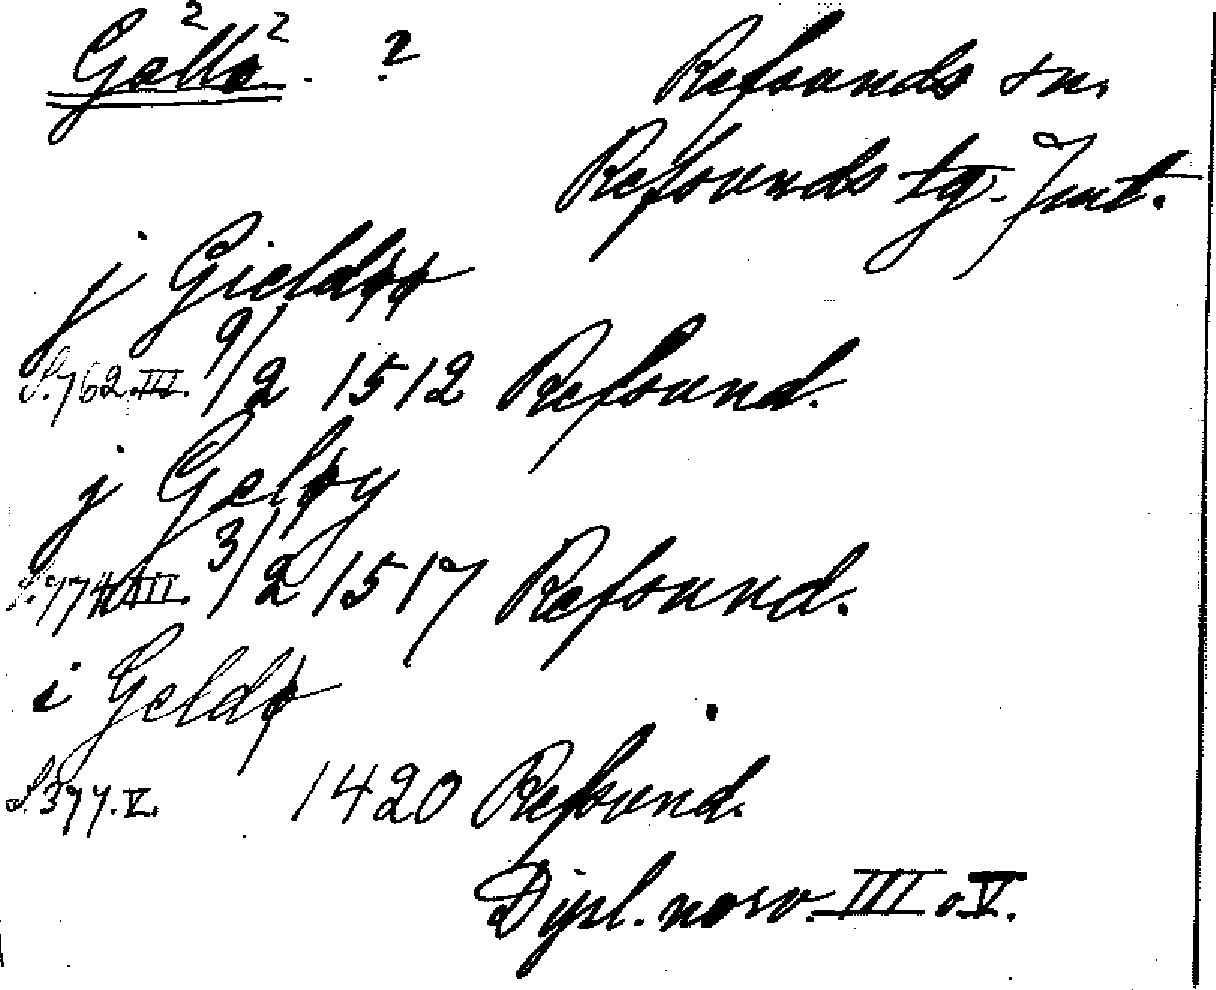 Gällö. ?
Refsunds sn.
Refsunds tg. Jmt.
j Gieldøø
S. 762. III. 9/2 1512 Refsund.
j Geløy
S. 774. III. 3/2 1517 Refsund.
i Geldø
S. 377. V. 1420 Refsund.
Dipl. norv. III o. V.